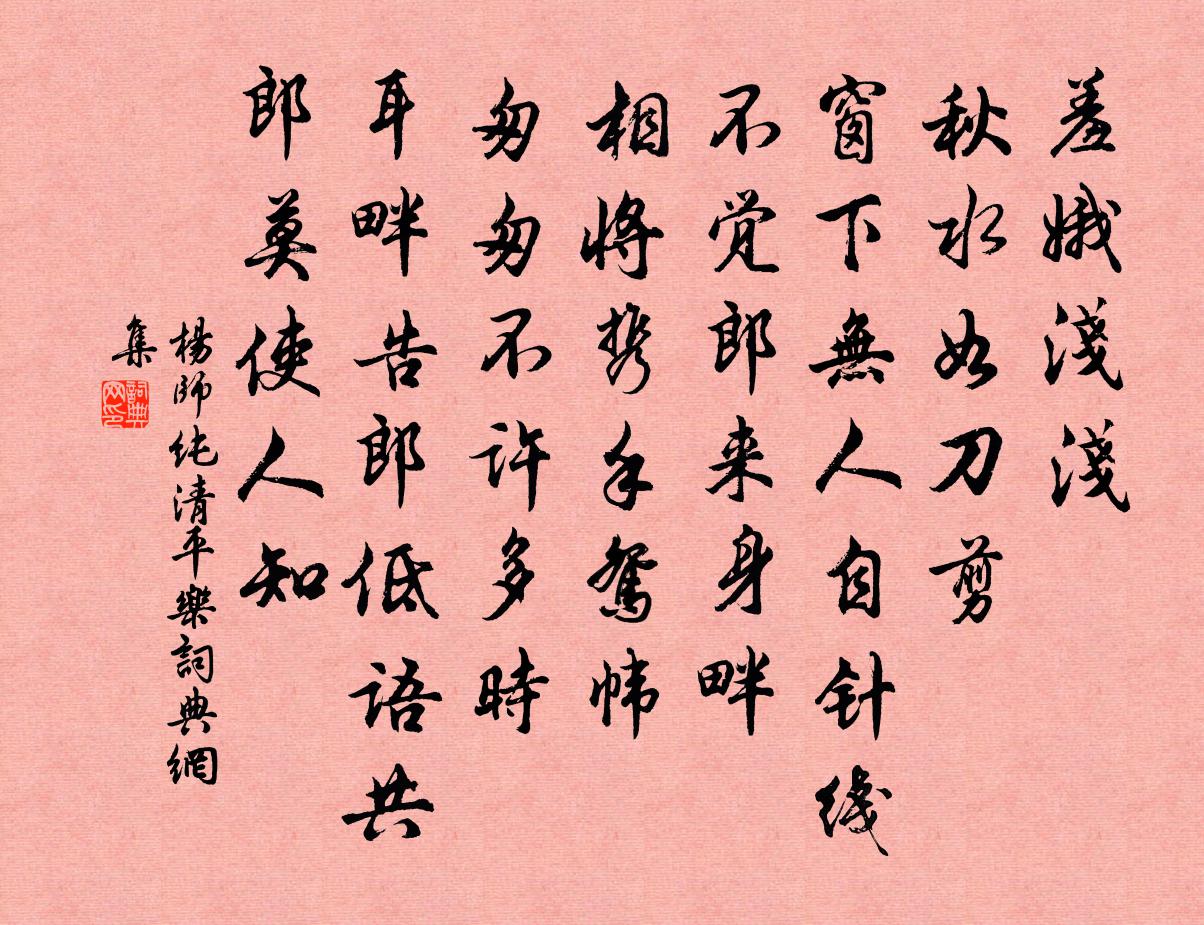 羞娥淺淺
秋水如刀剪
窗下無人自针线
不觉郎来身畔
相將携手鸳帏
匆匆不许多時
耳畔告郎低语共
郎莫使人知
楊師纯清平樂詞典網
集
詞典
网印